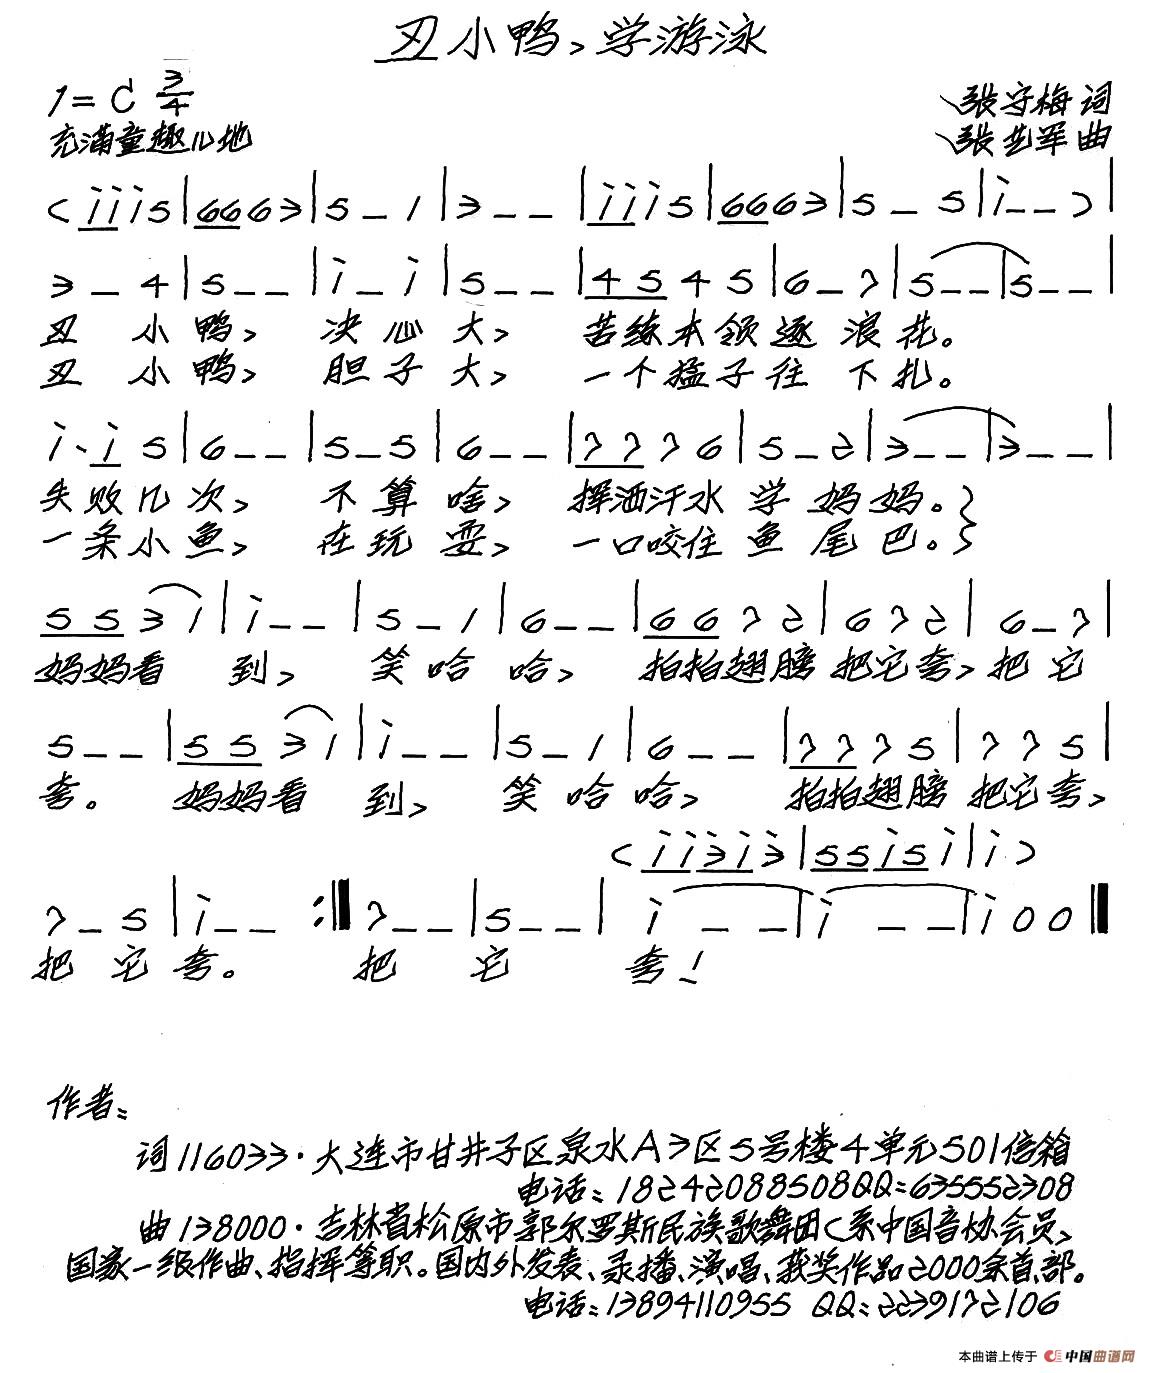 丑小鸭、学游泳
1=C 3/4
张守梅 词
充满童趣儿地
张艺军 曲
(i i i 5|6 6 6 3|5 – 1|3 – –|i i i 5|6 6 6 3|5 – 5|i – –)|
3 – 4|5 – –|i – i|5 – –|4 5 4 5|6 – 7|5 – –|5 – –|
丑 小 鸭、 决 心 大、 苦练本领逐 浪 花。
丑 小 鸭、 胆 子 大、 一个猛子往 下 扎。
i· i 5|6 – –|5 – 5|6 – –|7 7 7 6|5 – 2|3 – –|3 – –|
失败几次、 不 算 啥、 挥洒汗水 学 妈 妈。}
一条小鱼、 在 玩 耍、 一口咬住 鱼 尾 巴。}
5 5 3 1|i – –|5 – 1|6 – –|6 6 7 2|6 7 2|6 – 7|
妈妈看 到、 笑 哈 哈、 拍拍翅膀 把它夸、把 它
5 – –|5 5 3 1|i – –|5 – 1|6 – –|7 7 7 5|7 7 5|
夸。 妈妈看 到、 笑 哈 哈、 拍拍翅膀 把它夸、
(i i 3 i 3|5 5 i 5 i|i)
7 – 5|i – – :‖7 – –|5 – –|i – –|i – –|i 0 0‖
把 它 夸。 把 它 夸!
作者:
词116033·大连市甘井子区泉水A3区5号楼4单元501信箱
电话:18242088508QQ:635552308
曲138000·吉林省松原市郭尔罗斯民族歌舞团(系中国音协会员、
国家一级作曲、指挥等职。国内外发表、录播、演唱、获奖作品2000余首、部。
电话:13894110955 QQ:2239172106
本曲谱上传于 中国曲谱网